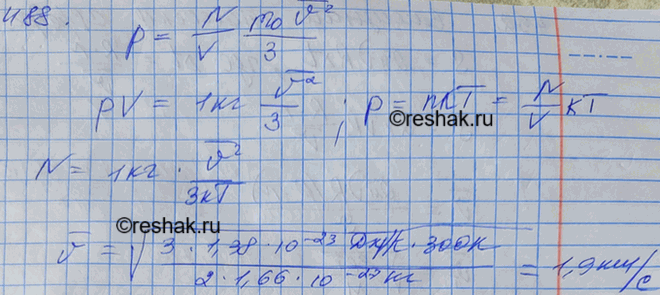 488.
p = N/V · m₀ v̅²/3
pV = 1кг v̅²/3 ; p = nkT = N/V kT
©reshak.ru
N = 1кг · v̅²/3kT
©reshak.ru
v̅ = √(3 · 1,38 · 10⁻²³ Дж/К · 300К / 2 · 1,66 · 10⁻²⁷ кг) = 1,9 км/с